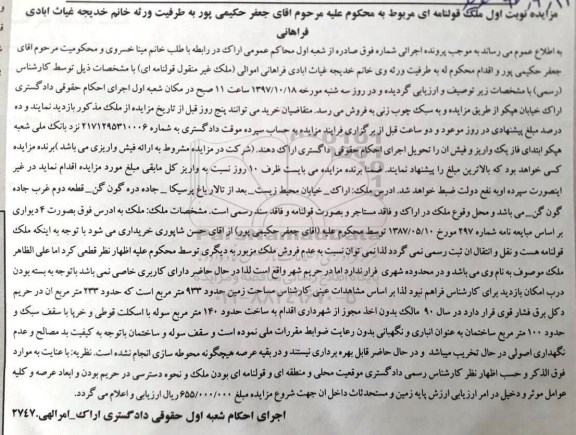 مزایده نوبت اول ملک قولنامه ای مربوط به محکوم علیه مرحوم اقای جعفر حکیمی پور به طرفیت ورثه خانم خدیجه غیاث ابادی
فراهانی
به اطلاع عموم می رساند به موجب پرونده اجرائی شماره فوق صادره از شعبه اول محاکم عمومی اراک در رابطه با طلب خانم مینا خسروی و محکومیت مرحوم اقای
جعفر حکیمی پور و اقدام محکوم له به طرفیت ورثه وی خانم خدیجه غیاث ابادی فراهانی اموالی (ملک غیر منقول قولنامه ای) با مشخصات ذیل توسط کارشناس
(رسمی) با مشخصات زیر توصیف و ارزیابی گردیده و در روز سه شنبه مورخه ۱۳۹۷/۱۰/۱۸ ساعت ۱۱ صبح در مکان شعبه اول اجرای احکام حقوقی دادگستری
اراک خیابان هپکو از طریق مزایده و به سبک چوب زنی به فروش می رسد. متقاضیان خرید می توانند پنج روز قبل از تاریخ مزایده از ملک مذکور بازدید نمایند و ده
درصد مبلغ پیشنهادی در روز موعود و دو ساعت قبل از برگزاری فرایند مزایده به حساب سپرده موقت دادگستری به شماره ۲۱۷۱۲۹۵۳۱۰۰۰۶ نزد بانک ملی شعبه
هپکو ابتدای فاز یک واریز و فیش ان را تحویل اجرای احکام حقوقی دادگستری اراک دهند. (شرکت در مزایده مشروط به ارائه فیش واریزی می باشد) برنده مزایده
کسی خواهد بود که بالاترین مبلغ را پیشنهاد نمایند. ضمنا برنده مزایده می بایست ظرف ۱۰ روز نسبت به واریز کل مابقی مبلغ مورد مزایده اقدام نماید در غیر
اینصورت سپرده او به نفع دولت ضبط خواهد شد. ادرس ملک: اراک_ خیابان محیط زیست_ بعد از تالار باغ پرسیکا _ جاده دره گون گن_ قطعه دوم غرب جاده
گون گن_ می باشد و محل وقوع ملک در اراک و فاقد مستاجر و بصورت قولنامه و فاقد سند رسمی است. مشخصات ملک: ملک به ادرس فوق بصورت ۴ دیواری
بر اساس مبایعه نامه شماره ۲۹۷ مورخ ۱۳۸۷/۰۵/۱۰ توسط محکوم علیه (اقای جعفر حکیمی پور) از اقای حسن شاپوری خریداری می شود با توجه به اینکه ملک
قولنامه هست و نقل و انتقال ان ثبت رسمی نمی گردد لذا نمی توان نسبت به عدم فروش ملک مزبور به دیگری توسط محکوم علیه اظهار نظر قطعی کرد اما علی الظاهر
ملک موصوف به نام وی می باشد و در محدوده شهری قرار ندارد اما در حریم شهر واقع است لذا در حال حاضر دارای کاربری خاصی نمی باشد باتوجه به بسته بودن
درب امکان بازدید برای کارشناس فراهم نبود لذا بر اساس مشاهدات عینی کارشناس مساحت زمین حدود ۹۳۳ متر مربع است که حدود ۲۳۳ متر مربع ان در حریم
دکل برق فشار قوی قرار دارد در سال ۹۰ مالک بدون اخذ مجوز از شهرداری اقدام به ساخت حدود ۱۴۰ متر مربع سوله با اسکلت قوطی و خرپا با سقف سبک و
حدود ۱۰۰ متر مربع ساختمان به عنوان انباری و نگهبانی بدون رعایت ضوابط مقررات ملی نموده است و سقف سوله و ساختمان باتوجه به کیفیت بد مصالح و عدم
نگهداری اصولی در حال تخریب میباشد و در حال حاضر قابل بهره برداری نیستند و در بقیه عرصه هیچگونه محوطه سازی انجام نشده است. نظریه: با عنایت به موارد
فوق الذکر و حسب اظهار نظر کارشناس رسمی دادگستری موقعیت محلی و منطقه ای و قولنامه ای بودن ملک و نحوه دسترسی در حریم بودن و ابعاد عرصه و کلیه
عوامل موثر و دخیل در امر ارزیابی ارزش پایه زمین و مستحدثات داخل ان جهت شروع مزایده مبلغ ۶۵۵/۰۰۰/۰۰۰ ریال ارزیابی و اعلام می گردد.
اجرای احکام شعبه اول حقوقی دادگستری اراک_امرالهی.۲۷۴۷